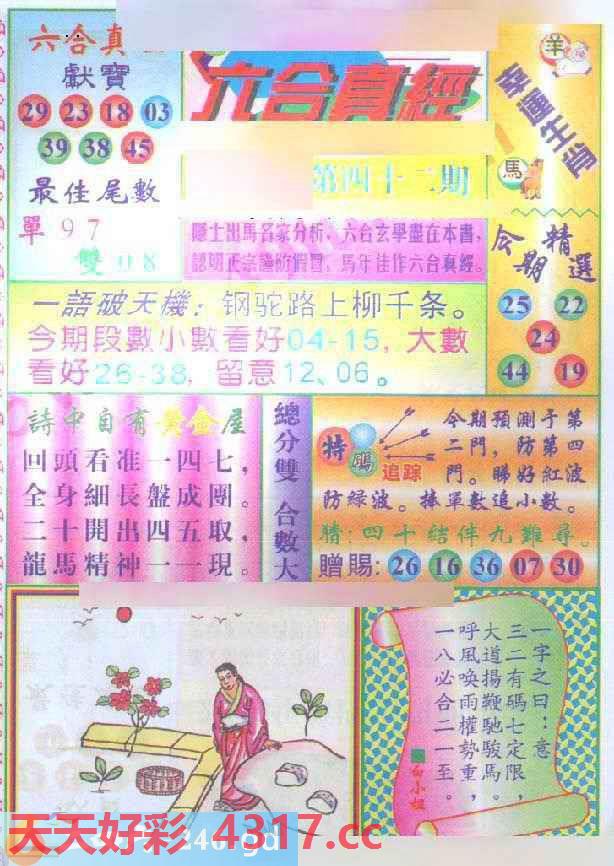 六合真
獻寶
29 23 18 03
39 38 45
最佳尾數
單 9 7
雙 0 8
六合真經
第四十二期
隱士出馬名家分析，六合玄學盡在本書，
認明正宗謹防假冒，馬年佳作六合真經。
羊
幸運生肖
馬
今期精選
25 22
24
44 19
一語破天機：钢驼路上柳千条。
今期段數小數看好04-15，大數
看好26-38，留意12、06。
詩中自有黃金屋
回頭看准一四七，
全身細長盤成團。
二十開出四五取，
龍馬精神一一現。
總分雙 合數大
特碼追踪
今期預測予第
二門，防第四
門。睇好紅波
防綠波。捧單數追小數。
猜：四十结伴九難尋。
贈賜：26 16 36 07 30
一字之曰：意
三二有碼七定限，
大道揚鞭馳駿馬。
呼風喚雨權勢重，
一八必合二一至。
白小姐
天天好彩 4317.cc
246.gd